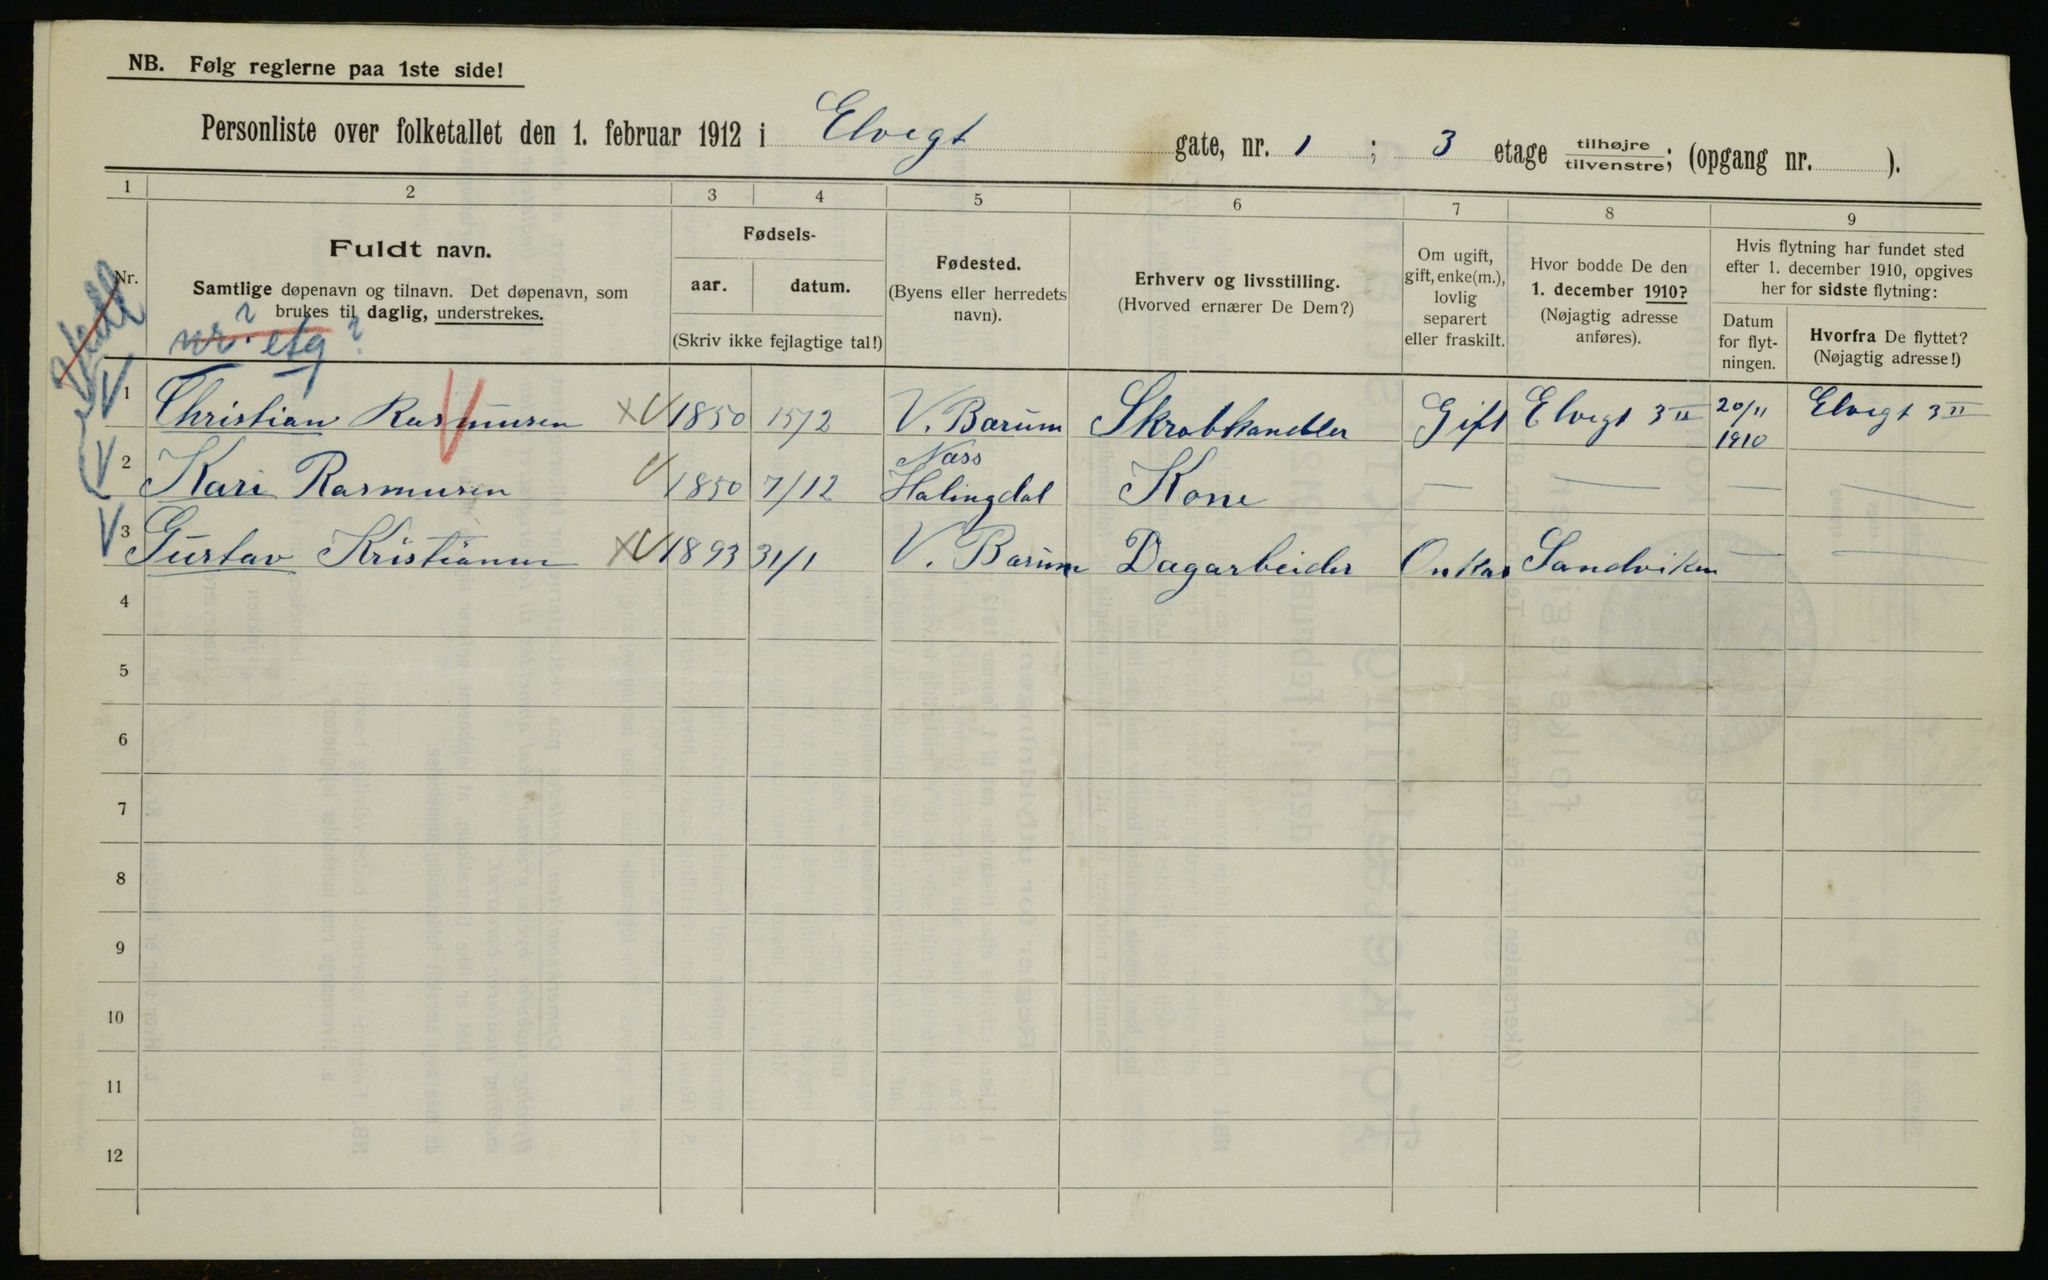 NB. Følg reglerne paa 1ste side!
Personliste over folketallet den 1. februar 1912 i Elvegt gate, nr. 1 ; 3 etage tilhøjre/tilvenstre; (opgang nr. ).
1 2 3 4 5 6 7 8 9
Nr.
Fuldt navn.
Samtlige døpenavn og tilnavn. Det døpenavn, som
brukes til daglig, understrekes.
nr? etg?
Fødsels-
aar. datum.
(Skriv ikke fejlagtige tal!)
Fødested.
(Byens eller herredets
navn).
Erhverv og livsstilling.
(Hvorved ernærer De Dem?)
Om ugift,
gift, enke(m.),
lovlig
separert
eller fraskilt.
Hvor bodde De den
1. december 1910?
(Nøjagtig adresse
anføres).
Hvis flytning har fundet sted
efter 1. december 1910, opgives
her for sidste flytning:
Datum
for flyt-
ningen.
Hvorfra De flyttet?
(Nøjagtig adresse!)
1 Christian Rasmusen 1850 15/2 V. Bærum Skrabhandler Gift Elvegt 3 II 20/11 1910 Elvegt 3 II
2 Kari Rasmusen 1850 7/12 Næss Halingdal Kone — — — —
3 Gustav Kristiansen 1893 31/1 V. Bærum Dagarbeider Sandviken — —
4
5
6
7
8
9
10
11
12